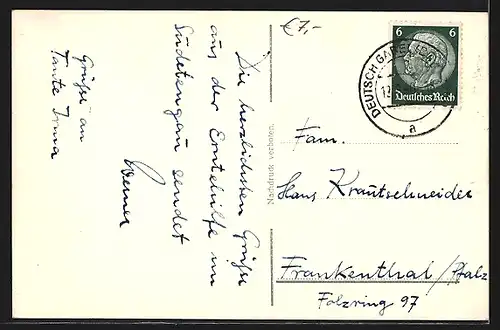 €7,-
Die herzlichsten Grüße
aus der Erntehilfe im
Sudetengau sendet
Werner
Grüße an
Tante Irma
Nachdruck verboten.
6 6
Deutsches Reich
DEUTSCH
a
Fam.
Hans Krautschneider
Frankenthal/Pfalz
Folzring 97